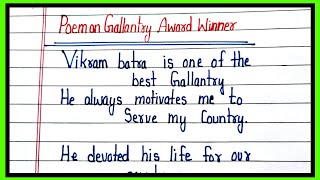 Poem on Gallantry Award Winner
Vikram batra is one of the
best Gallantry
He always motivates me to
Serve my Country.
He devoted his life for our